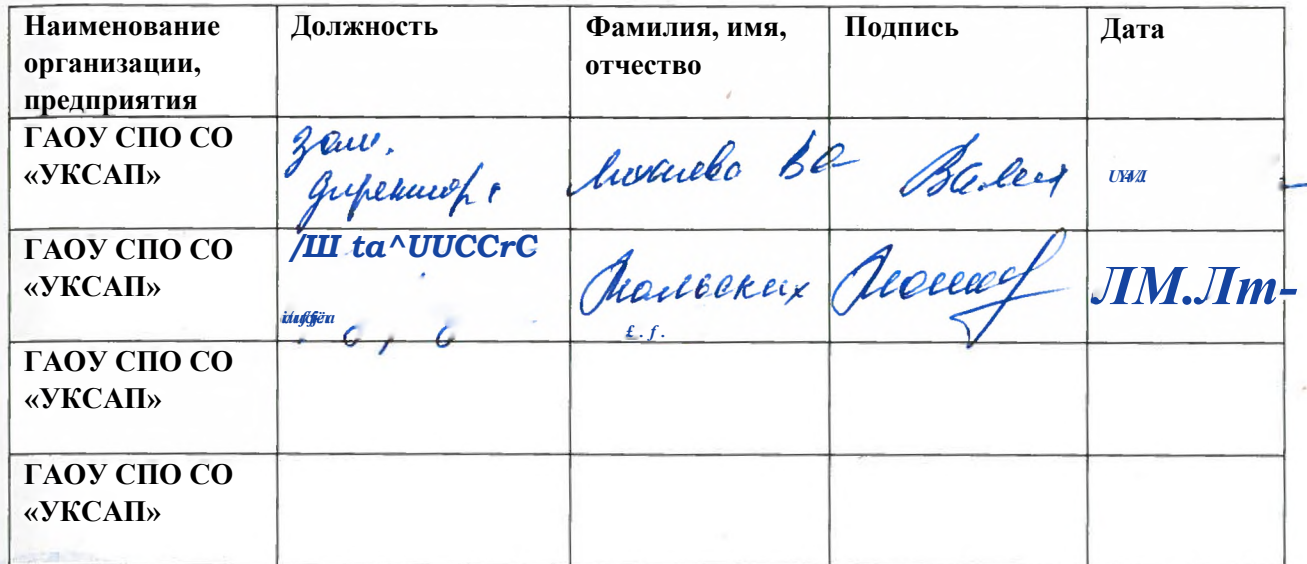 Наименование
организации,
предприятия
Должность
Фамилия, имя,
отчество
Подпись
Дата
ГАОУ СПО СО
«УКСАП»
зам.
директора
ГАОУ СПО СО
«УКСАП»
/Ш ta^UUCCrC
£. f.
ЛМ.Лт-
ГАОУ СПО СО
«УКСАП»
ГАОУ СПО СО
«УКСАП»